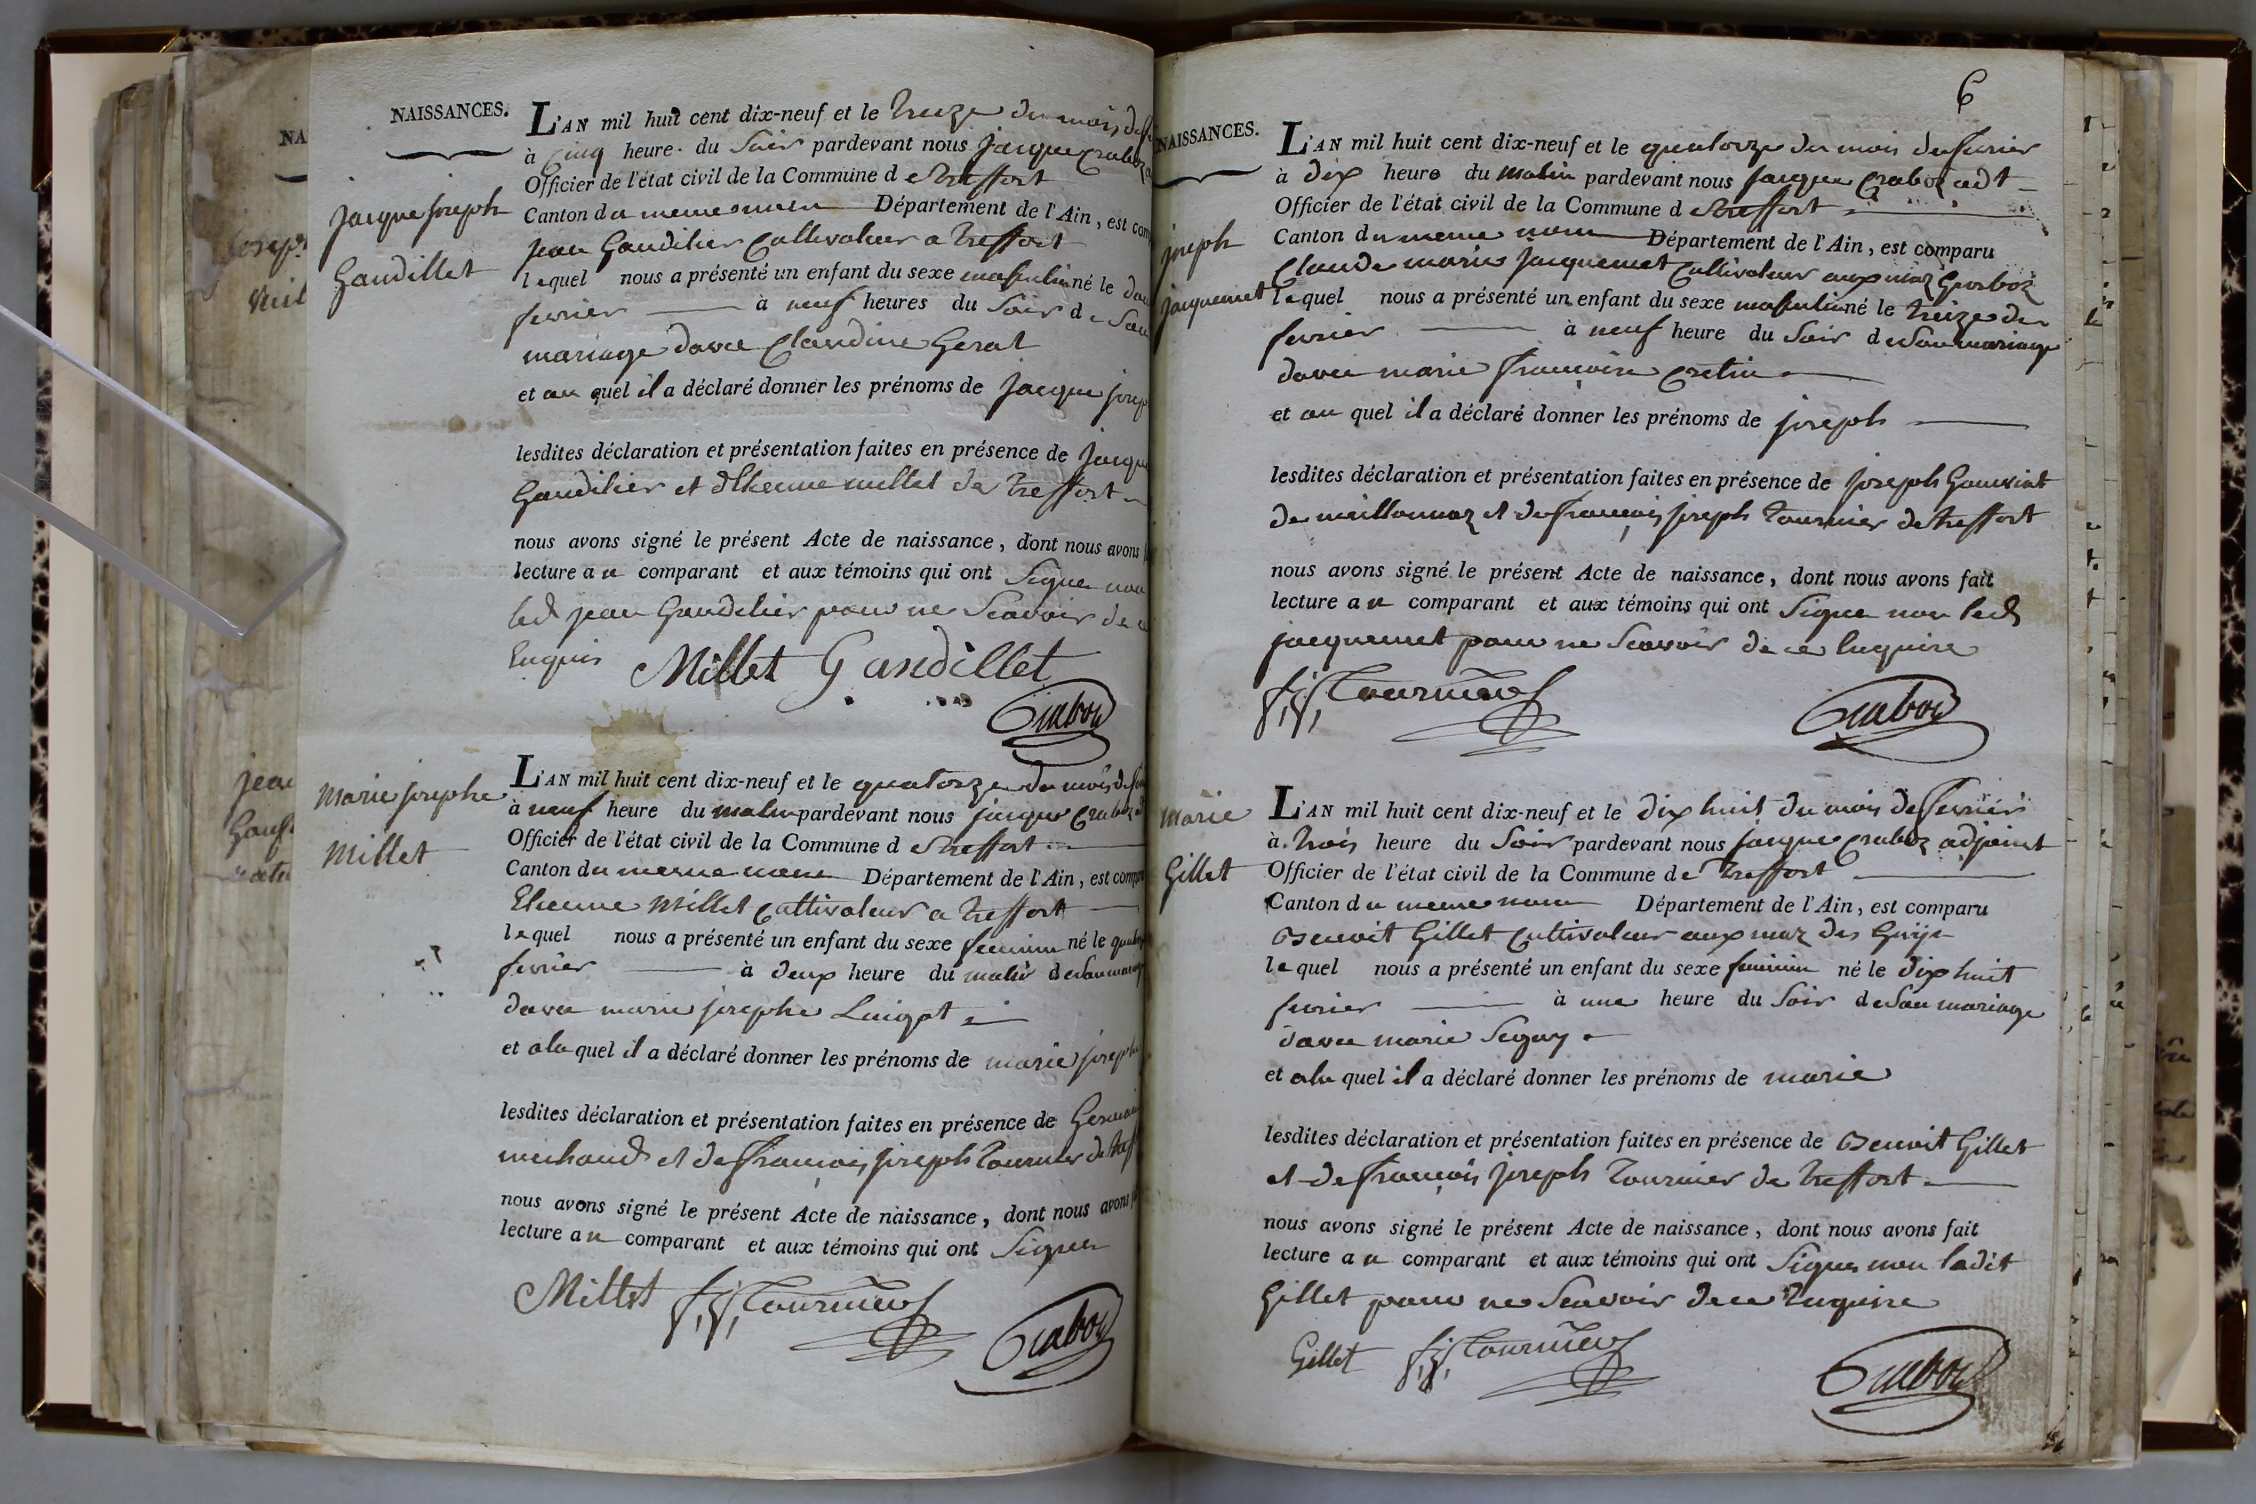 NAISSANCES.
Jacque Joseph
Gaudillet
L'AN mil huit cent dix-neuf et le treize du mois de
à Cinq heure. du Soir pardevant nous Jacque Craboz
Officier de l'état civil de la Commune d e treffort
Canton du meme nom Département de l'Ain, est com
Jean Gaudilier Cultivateur a treffort
lequel nous a présenté un enfant du sexe masculin né le
fevrier à neuf heures du Soir de Son
mariage d'avec Claudine Gerat
et au quel il a déclaré donner les prénoms de Jacque Josep
lesdites déclaration et présentation faites en présence de Jacque
Gaudilier et d'Etienne millet de treffort
nous avons signé le présent Acte de naissance, dont nous avons
lecture au comparant et aux témoins qui ont Signé non
led. jean Gaudilier pour ne Scavoir de ce
Enquis Millet Gandillet
Craboz
Marie josephe
Millet
L'AN mil huit cent dix-neuf et le quatorze du mois de
à neuf heure du matin pardevant nous jacque Craboz
Officier de l'état civil de la Commune d e treffort
Canton du meme nom Département de l'Ain, est compa
Etienne Millet Cultivateur a treffort
lequel nous a présenté un enfant du sexe feminin né le
fevrier à deux heure du matin de Son mariage
davec marie josephe Luigot
et a la quel il a déclaré donner les prénoms de marie josephe
lesdites déclaration et présentation faites en présence de Germain
michaud et de françois joseph tournier de treff
nous avons signé le présent Acte de naissance, dont nous avons
lecture au comparant et aux témoins qui ont Signé
Millet f. j. Tournier
Craboz
6
NAISSANCES.
joseph
jacquemet
L'AN mil huit cent dix-neuf et le quatorze du mois de fevrier
à dix heure du matin pardevant nous jacque Craboz adt
Officier de l'état civil de la Commune d e treffort
Canton du meme nom Département de l'Ain, est comparu
Claude marie Jacquemet Cultivateur aux maz
lequel nous a présenté un enfant du sexe masculin né le treize du
fevrier à neuf heure du Soir de Son mariage
davec marie françoise Cretin
et au quel il a déclaré donner les prénoms de joseph
lesdites déclaration et présentation faites en présence de joseph
de meillonnaz et de françois joseph tournier de treffort
nous avons signé le présent Acte de naissance, dont nous avons fait
lecture au comparant et aux témoins qui ont Signé non led
jacquemet pour ne Scavoir de ce Enquire
f. j. Tournier
Craboz
Marie
Gillet
L'AN mil huit cent dix-neuf et le dix huit du mois de fevrier
à trois heure du Soir pardevant nous jacque Craboz adjoint
Officier de l'état civil de la Commune de treffort
Canton du meme nom Département de l'Ain, est comparu
Benoit Gillet Cultivateur aux maz des
lequel nous a présenté un enfant du sexe feminin né le dix huit
fevrier à une heure du Soir de Son mariage
davec marie Seguy
et a la quel il a déclaré donner les prénoms de marie
lesdites déclaration et présentation faites en présence de Benoit Gillet
et de françois joseph tournier de treffort
nous avons signé le présent Acte de naissance, dont nous avons fait
lecture au comparant et aux témoins qui ont Signés non ladit
Gillet pour ne Scavoir de ce Enquire
Gillet f. j. Tournier
Craboz